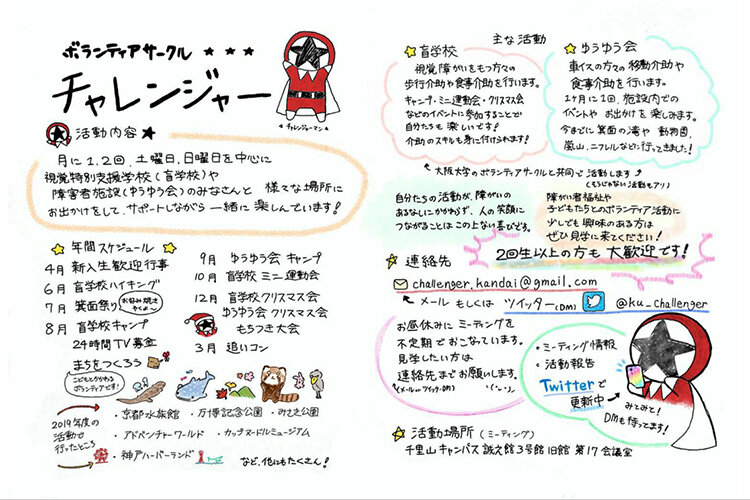 ボランティアサークル ★ ★ ★
チャレンジャー
チャレンジャーマン
活動内容 ★
月に1,2回、土曜日、日曜日を中心に
視覚特別支援学校(盲学校)や
障害者施設(ゆうゆう会)のみなさんと 様々な場所に
お出かけをして、サポートしながら 一緒に 楽しんでいます!
年間スケジュール
4月 新入生歓迎行事
6月 盲学校ハイキング
7月 箕面祭り
8月 盲学校キャンプ
24時間TV募金
まちをつくろう
こどもとかかわる
ボランティアです!
9月 ゆうゆう会 キャンプ
10月 盲学校 ミニ運動会
12月 盲学校クリスマス会
ゆうゆう会 クリスマス会
もちつき大会
3月 追いコン
2019年度の
活動で
行ったところ
・京都水族館 ・万博記念公園 ・みさき公園
・アドベンチャーワールド ・カップヌードルミュージアム
・神戸ハーバーランド など、他にもたくさん!
主な活動
盲学校
視覚障がいをもつ方々の
歩行介助や食事介助を行います。
キャンプ・ミニ運動会・クリスマス会
などのイベントに参加することで
自分たちも楽しいです!
介助のスキルも身に付けられます!
ゆうゆう会
車イスの方々の移動介助や
食事介助を行います。
1ヶ月に1回、施設内での
イベントや お出かけを 楽しみます。
今までに 箕面の滝や 動物園、
嵐山、ニフレルなどに行ってきました!
大阪大学のボランティアサークルと共同で活動します
(もちろんじゃない活動もアリ)
自分たちの活動が、障がいの
あるなしにかかわらず、人の笑顔に
つながることは この上ない喜びです。
障がい者福祉や
子どもたちとのボランティア活動に
少しでも興味のある方は
ぜひ見学に来てください!
2回生以上の方も 大歓迎です!
連絡先
challenger.kandai@gmail.com
メール もしくは ツイッター(DM) @ku_challenger
お昼休みに ミーティングを
不定期で おこなっています。
見学したい方は
連絡先までお願いします。
(メール or ツイッターDM)
・ミーティング情報
・活動報告
Twitterで
更新中
みてみて!
DMも待ってます!
活動場所(ミーティング)
千里山キャンパス 誠之館3号館旧館 第17会議室